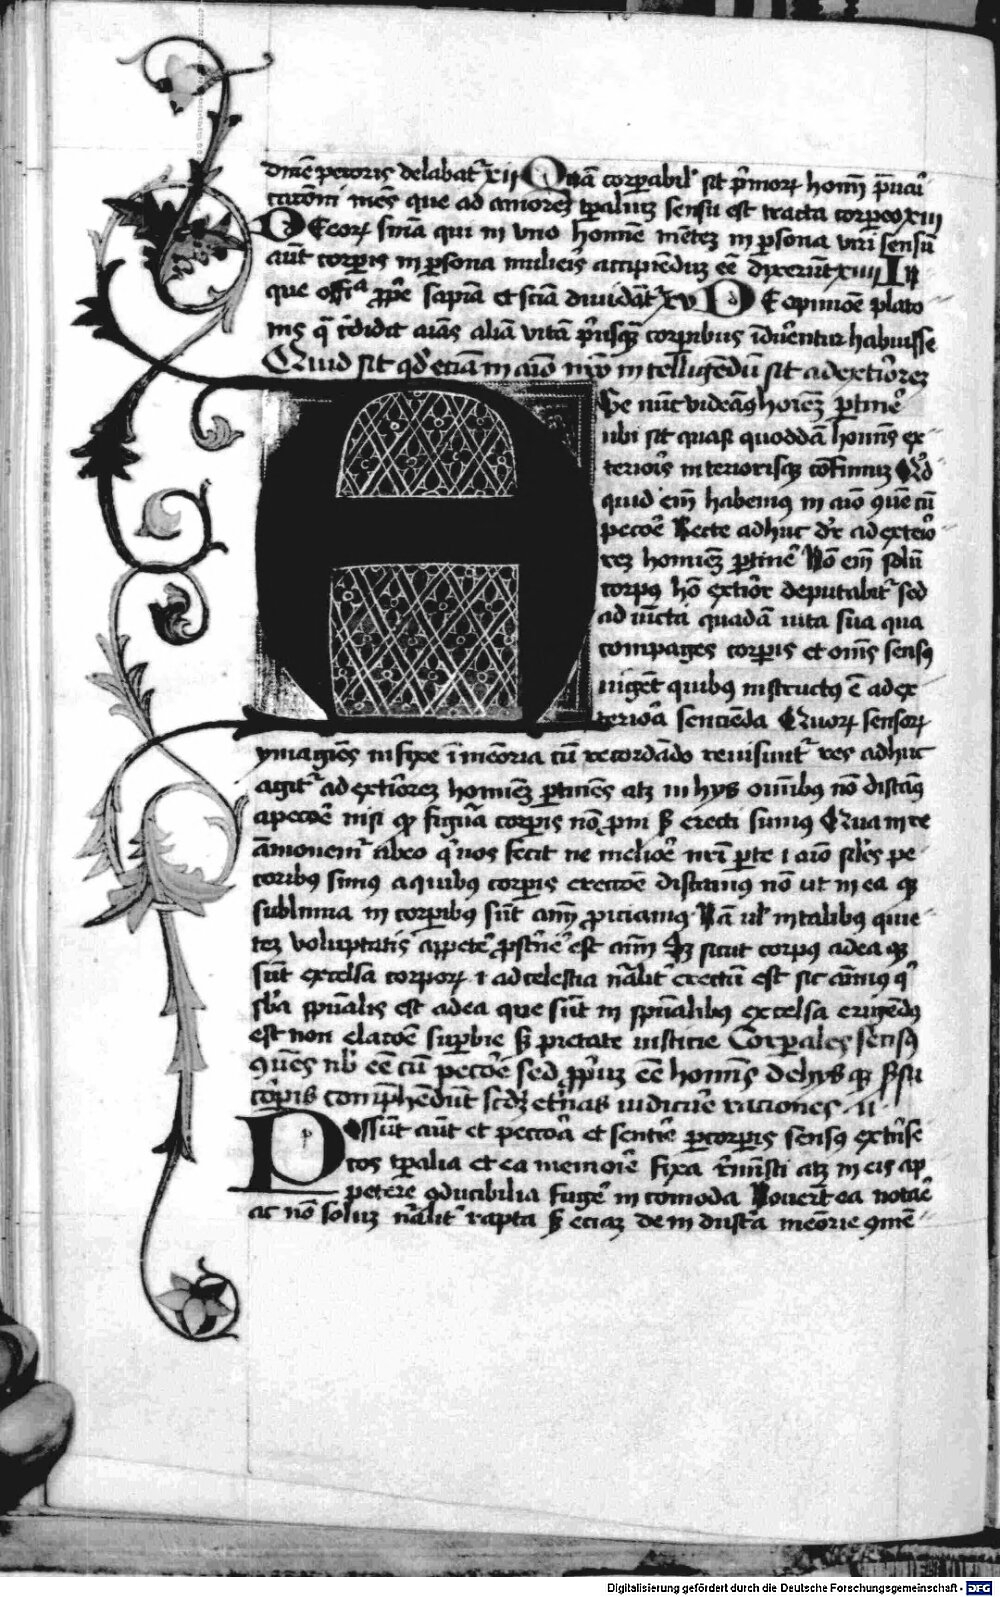 dinē pectoris delabat᷑ xii Quā corꝑabil᷑ sit p̄moꝝ homī p̄uaī
catōni mēs que ad amorez tꝑaliuz sensu est tracta corpeo xiii
De eoꝝ sn̄ia qui in vno homine mētez in ꝑsona viri sensū
aūt corꝑis in ꝑsona mulieis accipiēduz eē dixerūt xiiii In
que offiᵃ ꝓpe sapīa et scīa diuidāt᷑ xv De opinioē plato
nis q̄ t᷑didit aīas aliā vitā p᷑usq̄ꝫ corpibus īduerentur habuisse
Quid sit qd᷑ etiā in aīo nr̄o intelligendū sit ad extīorez
Ge nūc videāꝰ hoīez ꝑtinē
ubi sit quasi quoddā homīs ex
teriorīs interiorisqꝫ confiniuz Qd
quid em̄ habemꝰ in aīo ꝯuē cū
pecoē Recte adhuc dr̄ ad exteīo
rez homīez ꝑtinē᷑ Nō em̄ solū
corpꝰ hō extīor deputabit᷑ sed
ad iūcta quadā uita sua qua
compages corꝑis et om̄s sensꝰ
uigēt quibꝰ instructꝰ ē ad ex
teriōa sencienda Quoꝝ sensoꝝ
ymagiēs infixe ī memōria cū recordādo reuisunt᷑ res adhuc
agit᷑ ad extīorez homīez ꝑtinēs atqꝫ in hys omībꝰ nō distāꝰ
a pecoē nisi ꝙ figūra corꝑis nō p̄ni sꝫ erecti sumꝰ Qua in re
āmonem᷑ abeo qͥ nos fecit ne meliōe nrī ꝑte i aīo sil̄es pe
coribꝰ simꝰ a quibꝰ corꝑis erectōe distamꝰ nō ut in ea qꝫ
sublimia in corꝑibus sūt aīm ꝓiciamꝰ Nā ul᷑ in talibꝰ quie
tez voluptatis appetē᷑ ꝓstnē᷑ est aīm Sꝫ sicut corpꝰ ad ea qꝫ
sūt excelsa corpoꝝ i ad celestia nālit᷑ erectū est sic aīmꝰ qͥ
sb̄a spūalis est ad ea que sūt in spūalibꝰ excelsa erigēdꝰ
est non elatōe suꝑbie sꝫ pietate iusticie Corꝑales sensꝰ
cor̄pis comp̄hendūt scdꝫ et᷑nas iudicare raciones ii
Possūt aūt et peccōa et sentīe ꝑ corꝑis sensꝰ extīnse
cos tꝑalia et ea memoīe fixa r̄minsti atqꝫ in eis ap
petere ꝯducibilia fuge᷑ incomoda Nouert̄ ea notāe
ac nō soluz nālit᷑ rapta sꝫ eciaz de industīa memōrie ꝯmē
Digitalisierung gefördert durch die Deutsche Forschungsgemeinschaft - DFG